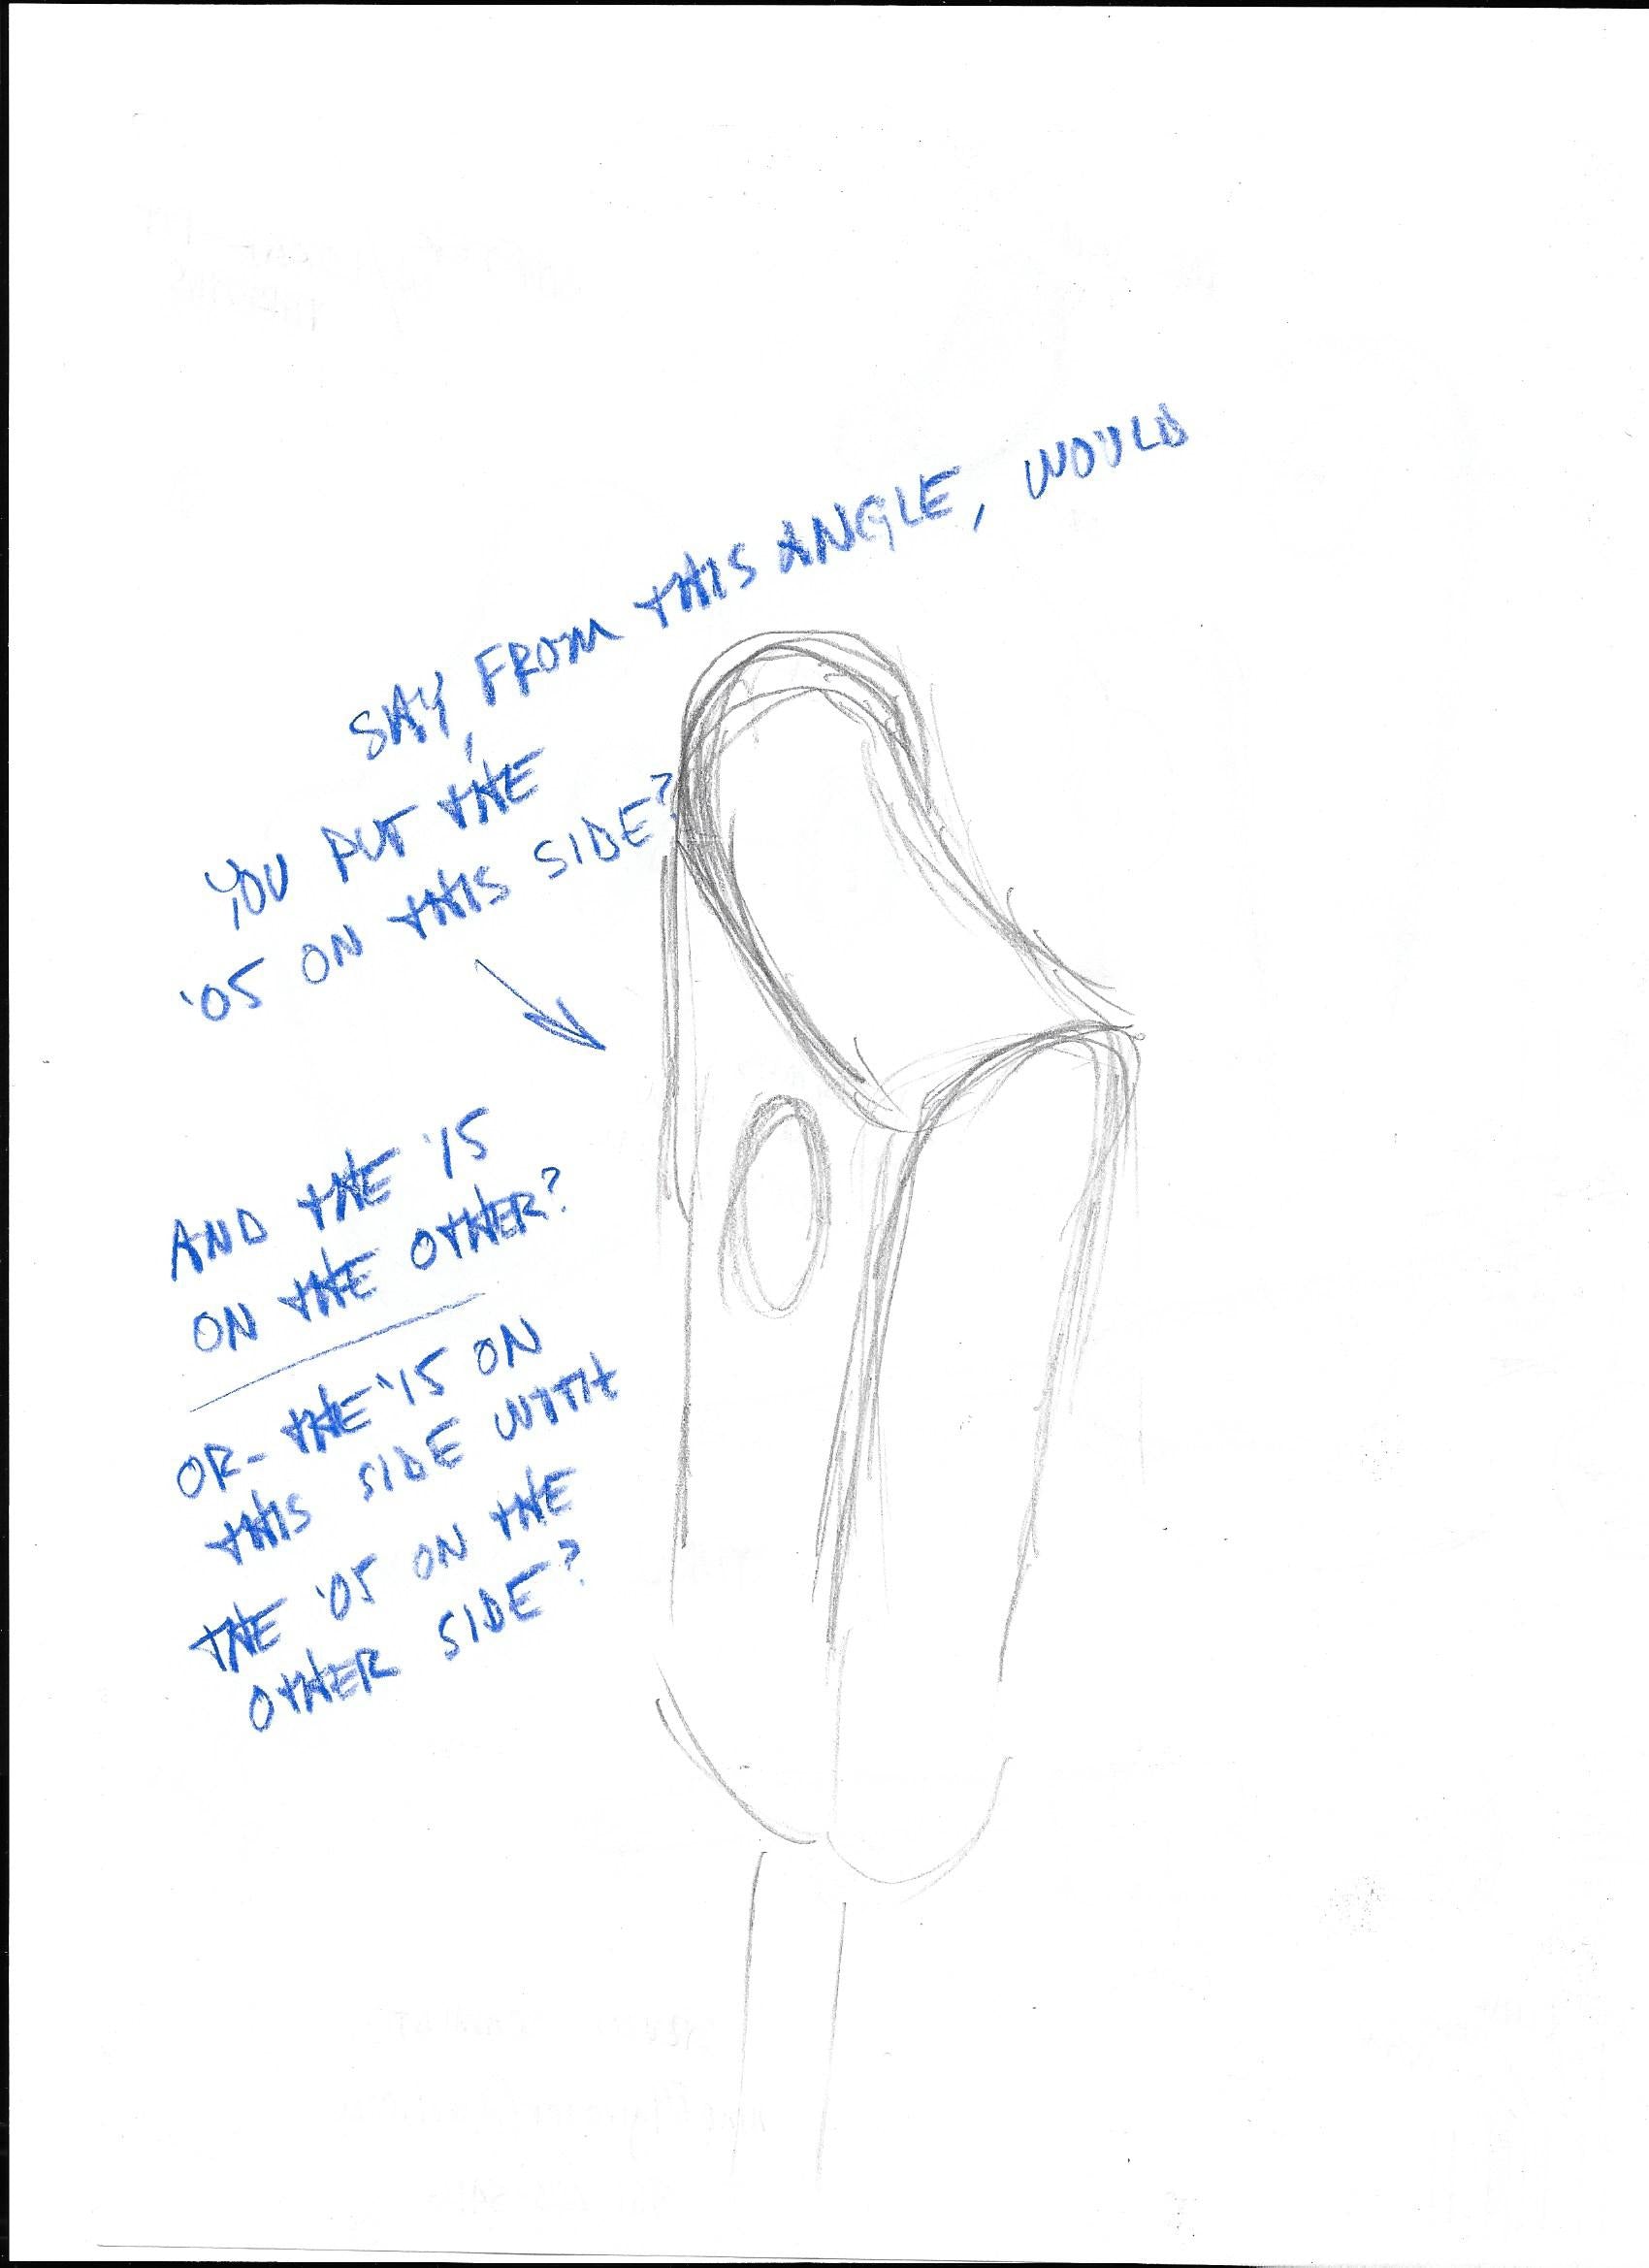 SAY, FROM THIS ANGLE, WOULD
YOU PUT THE
'05 ON THIS SIDE?
AND THE '15
ON THE OTHER?
OR- THE '15 ON
THIS SIDE WITH
THE '05 ON THE
OTHER SIDE?